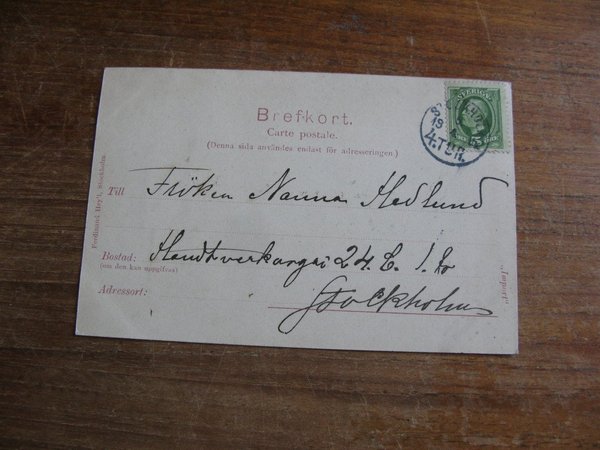 Brefkort.
Carte postale.
(Denna sida användes endast för adresseringen.)
SVERIGE
4.TUR.
Till Fröken Nanna Hedlund
Bostad: Handtverkargat 24. C. 1. tr
(om den kan uppgifvas)
Adressort: Stockholm
Ferdinand Hey'l, Stockholm
„Import"